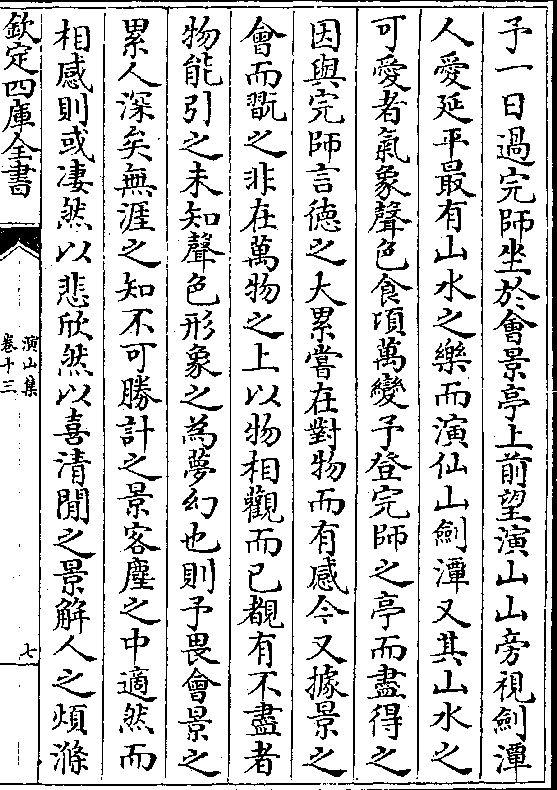 予一日過完師坐於會景亭上前望演山山旁視劍潭
人愛延平最有山水之樂而演仙山劍潭又其山水之
可愛者氣象聲色食項萬變予登完師之亭而盡得之
因與完師言德之大累嘗在對物而有感今又據景之
會而翫之非在萬物之上以物相觀而已覩有不盡者
物能引之未知聲色形象之為夢幻也則予畏會景之
累人深矣無涯之知不可勝計之景客塵之中適然而
相感則或凄然以悲欣然以喜清閒之景解人之煩滌
欽定四庫全書
演山集
卷十三
七